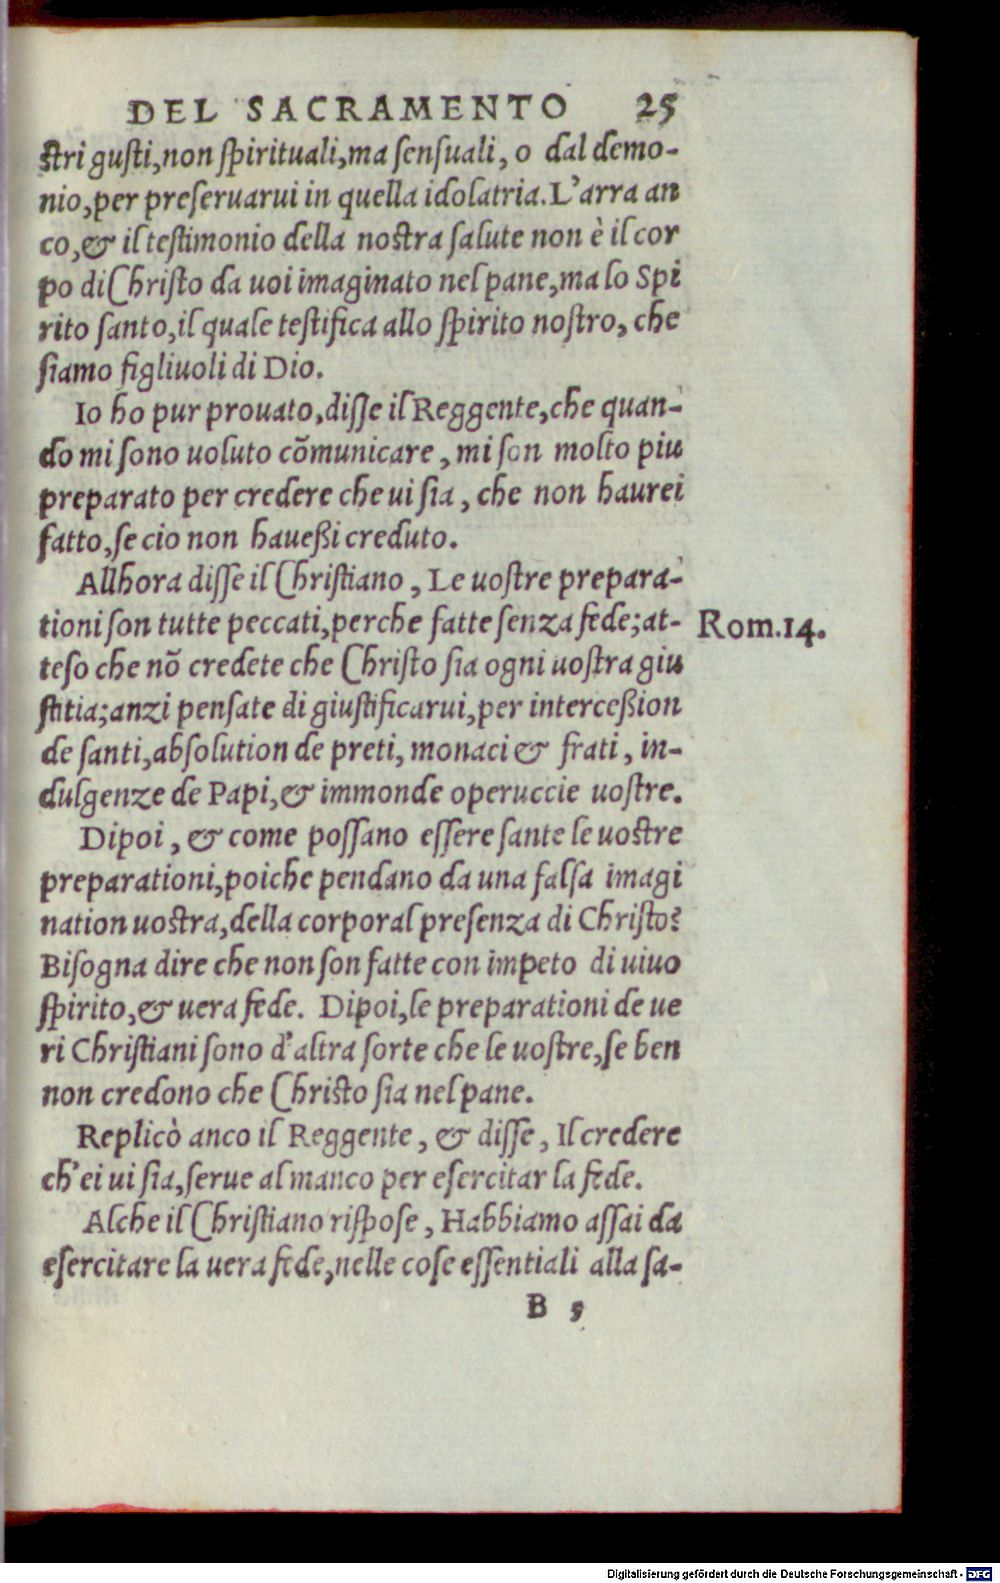 DEL SACRAMENTO 25
stri gusti, non spirituali, ma sensuali, o dal demo-
nio, per preseruarui in quella idolatria. L'arra an
co, & il testimonio della nostra salute non è il cor
po di Christo da uoi imaginato nel pane, ma lo Spi
rito santo, il quale testifica allo spirito nostro, che
siamo figliuoli di Dio.
Io ho pur prouato, disse il Reggente, che quan-
do mi sono uoluto cõmunicare, mi son molto piu
preparato per credere che ui sia, che non haurei
fatto, se cio non haueßi creduto.
Allhora disse il Christiano, Le uostre prepara-
tioni son tutte peccati, perche fatte senza fede; at-
Rom.14.
teso che nõ credete che Christo sia ogni uostra giu
stitia; anzi pensate di giustificarui, per interceßion
de santi, absolution de preti, monaci & frati, in-
dulgenze de Papi, & immonde operuccie uostre.
Dipoi, & come possano essere sante le uostre
preparationi, poiche pendano da una falsa imagi
nation uostra, della corporal presenza di Christo?
Bisogna dire che non son fatte con impeto di uiuo
spirito, & uera fede. Dipoi, le preparationi de ue
ri Christiani sono d'altra sorte che le uostre, se ben
non credono che Christo sia nel pane.
Replicò anco il Reggente, & disse, Il credere
ch'ei ui sia, serue al manco per esercitar la fede.
Alche il Christiano rispose, Habbiamo assai da
esercitare la uera fede, nelle cose essentiali alla sa-
B 5
Digitalisierung gefördert durch die Deutsche Forschungsgemeinschaft - DFG